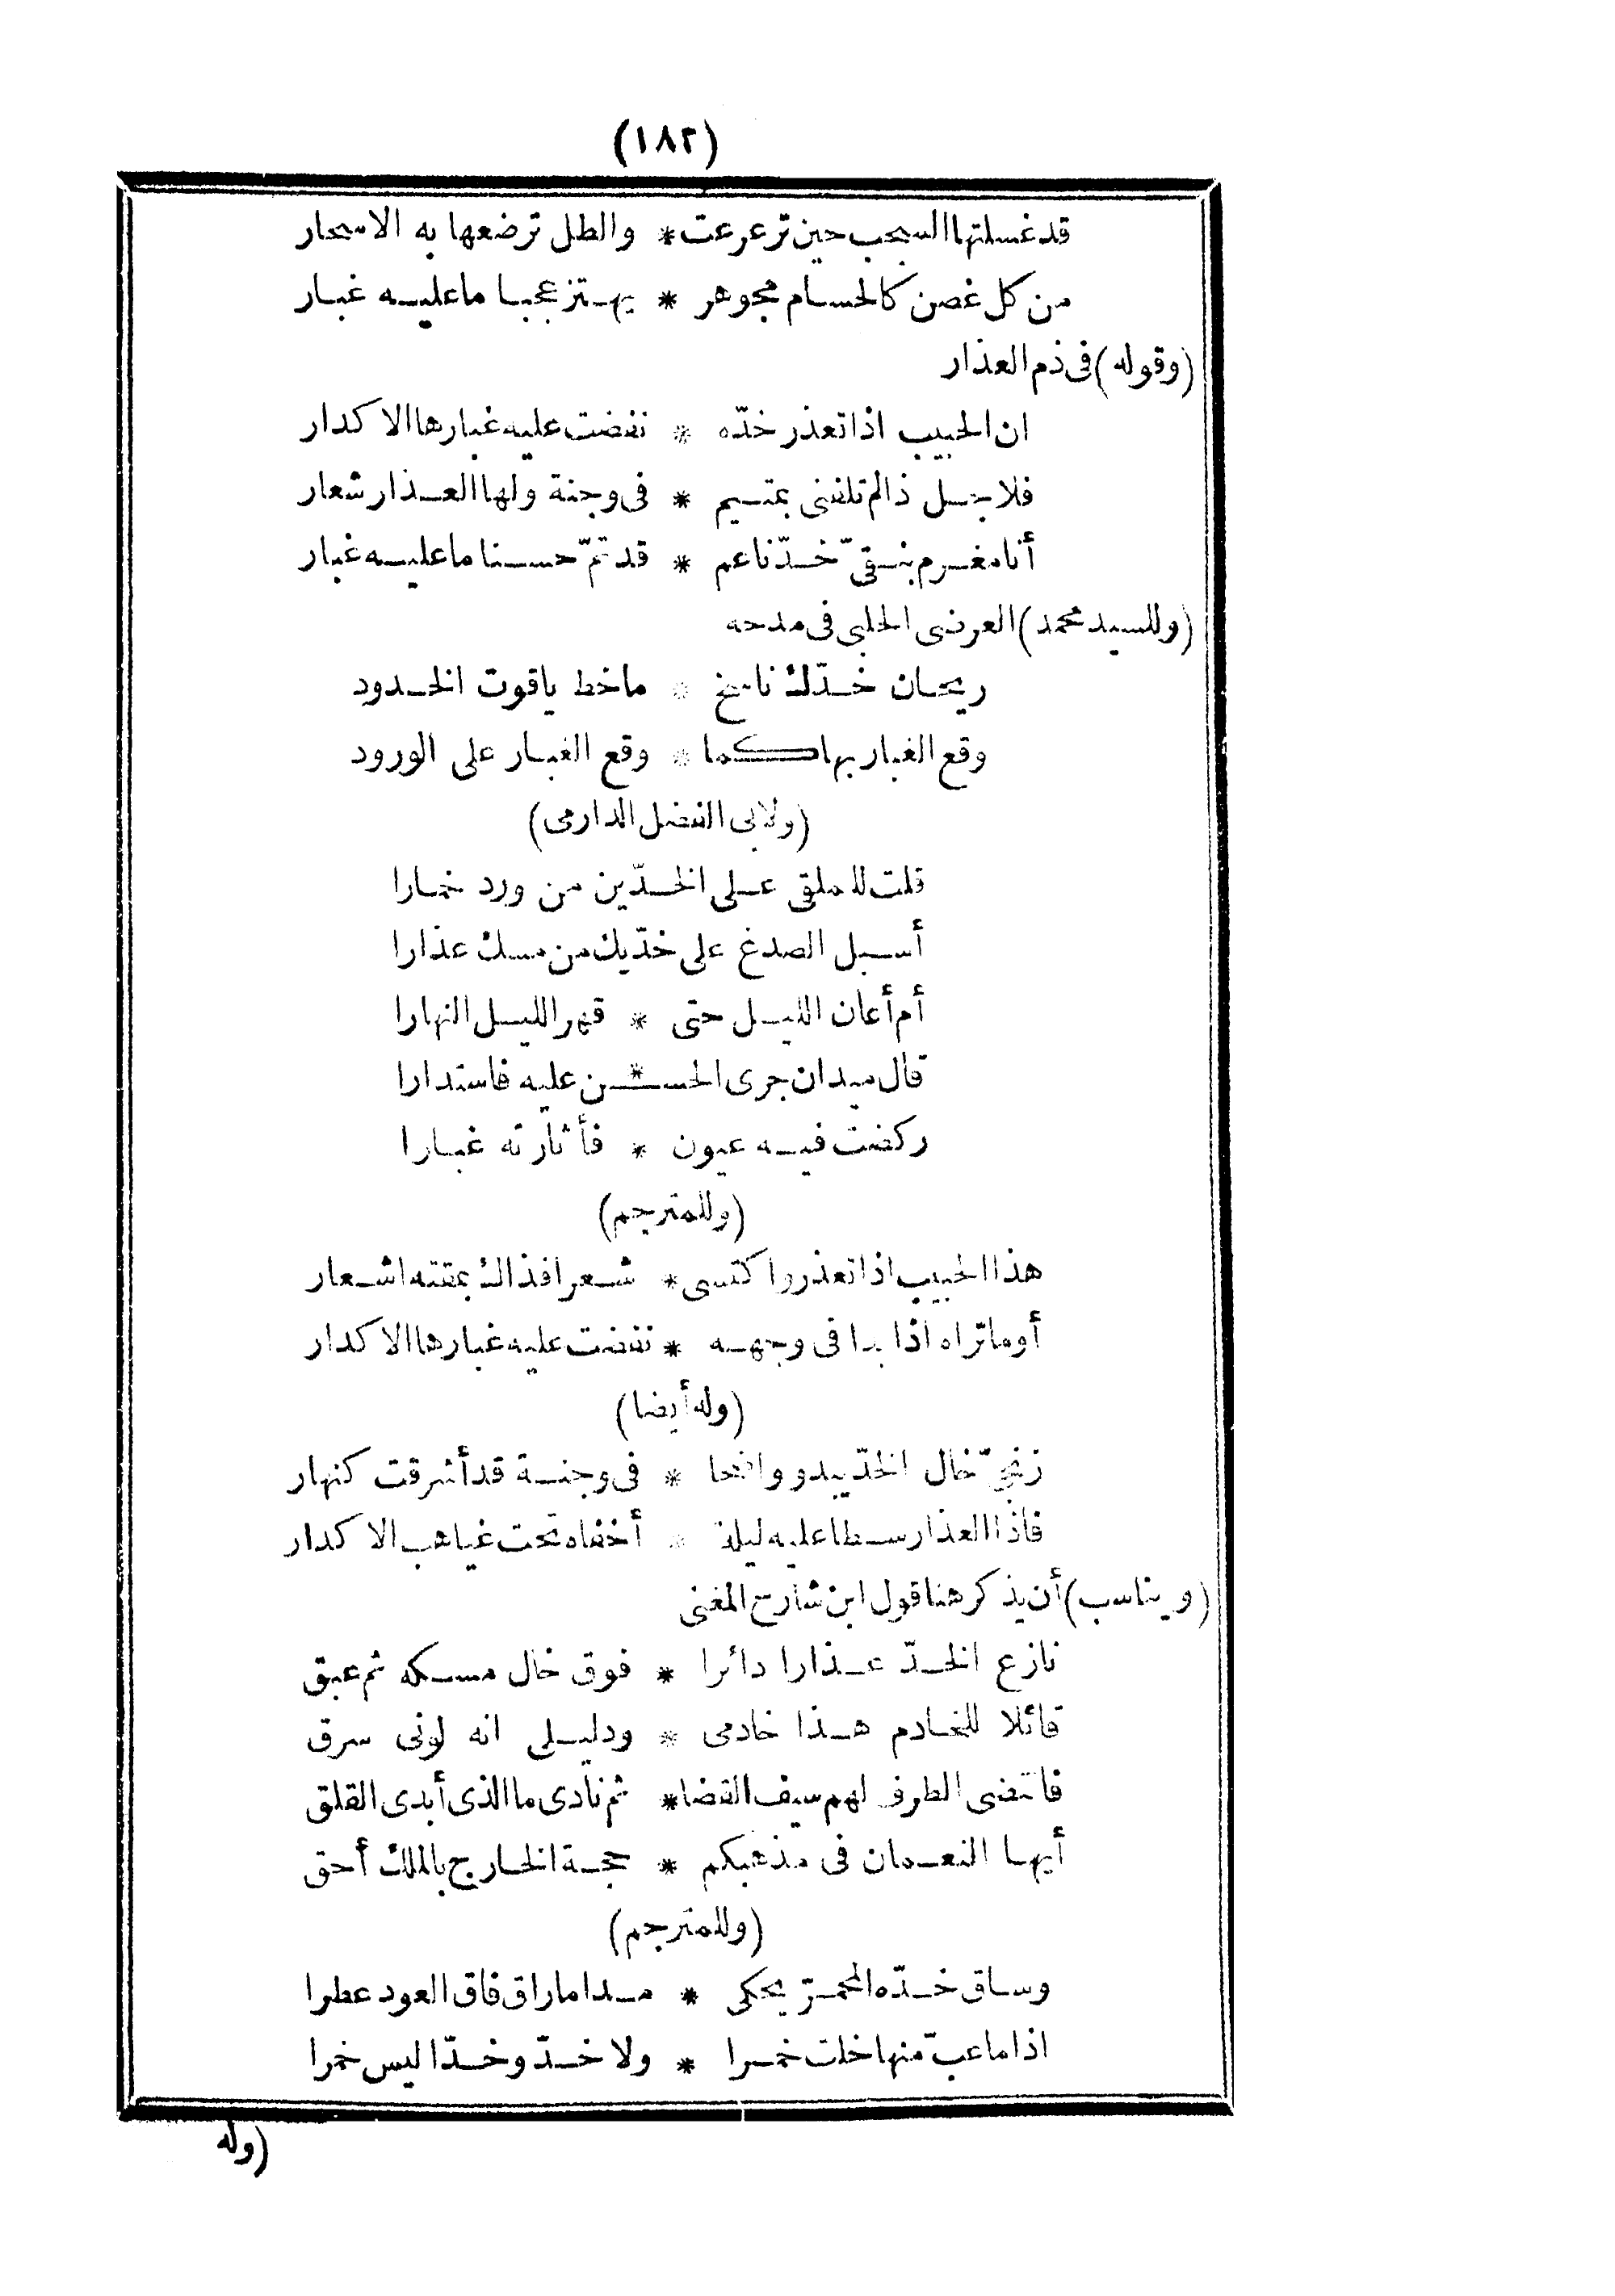 (١٨٢)
قد غسلتها السحب حين ترعرعت * والطل ترضعها به الاسحار
من كل غصن كالحسام مجوهر * يهتز عجبا ما عليه غبار
(وقوله) فى ذم العذار
ان الحبيب اذا تعذر خدّه * نفضت عليه غبارها الاكدار
فلاجل ذا لم تلفنى بمتيم * فى وجنة ولها العذار شعار
أنا مغرم بنقىّ خدّ ناعم * قد تمّ حسنا ما عليه غبار
(وللسيد محمد) العرضى الحلبى فى مدحه
ريحان خدّك ناسخ * ما خط ياقوت الخدود
وقع الغبار بها كما * وقع الغبار على الورود
(ولابى الفضل الدارمى)
قلت للملقى على الخدّين من ورد خمارا
أسبل الصدغ على خدّيك من مسك عذارا
أم أعان الليل حتى * قهر الليل النهارا
قال ميدان جرى الحسن * عليه فاستدارا
ركضت فيه عيون * فأثارته غبارا
(وللمترجم)
هذا الحبيب اذا تعذر واكتسى * شعرا فذاك بمقته اشعار
أوما تراه اذا بدا فى وجهه * نفضت عليه غبارها الاكدار
(وله أيضا)
زنجىّ خال الخدّ يبدو واضحا * فى وجنة قد أشرقت كنهار
فاذا العذار سطا عليه ليله * أخفاه تحت غياهب الاكدار
(ويناسب) أن يذكر هنا قول ابن شارح المغنى
نازع الخدّ عذارا دائرا * فوق خال مسكه ثم عبق
قائلا للخادم هذا خادمى * ودليلى انه لونى سرق
فانتضى الطرف لهم سيف القضا * ثم نادى ما الذى أبدى القلق
أيها النعمان فى مذهبكم * حجة الخارج بالملك أحق
(وللمترجم)
وساق خدّه المحمرّ يحكى * مداما راق فاق العود عطرا
اذا ما عبّ منها خلت خمرا * ولا خدّ وخدّا ليس خمرا
(وله